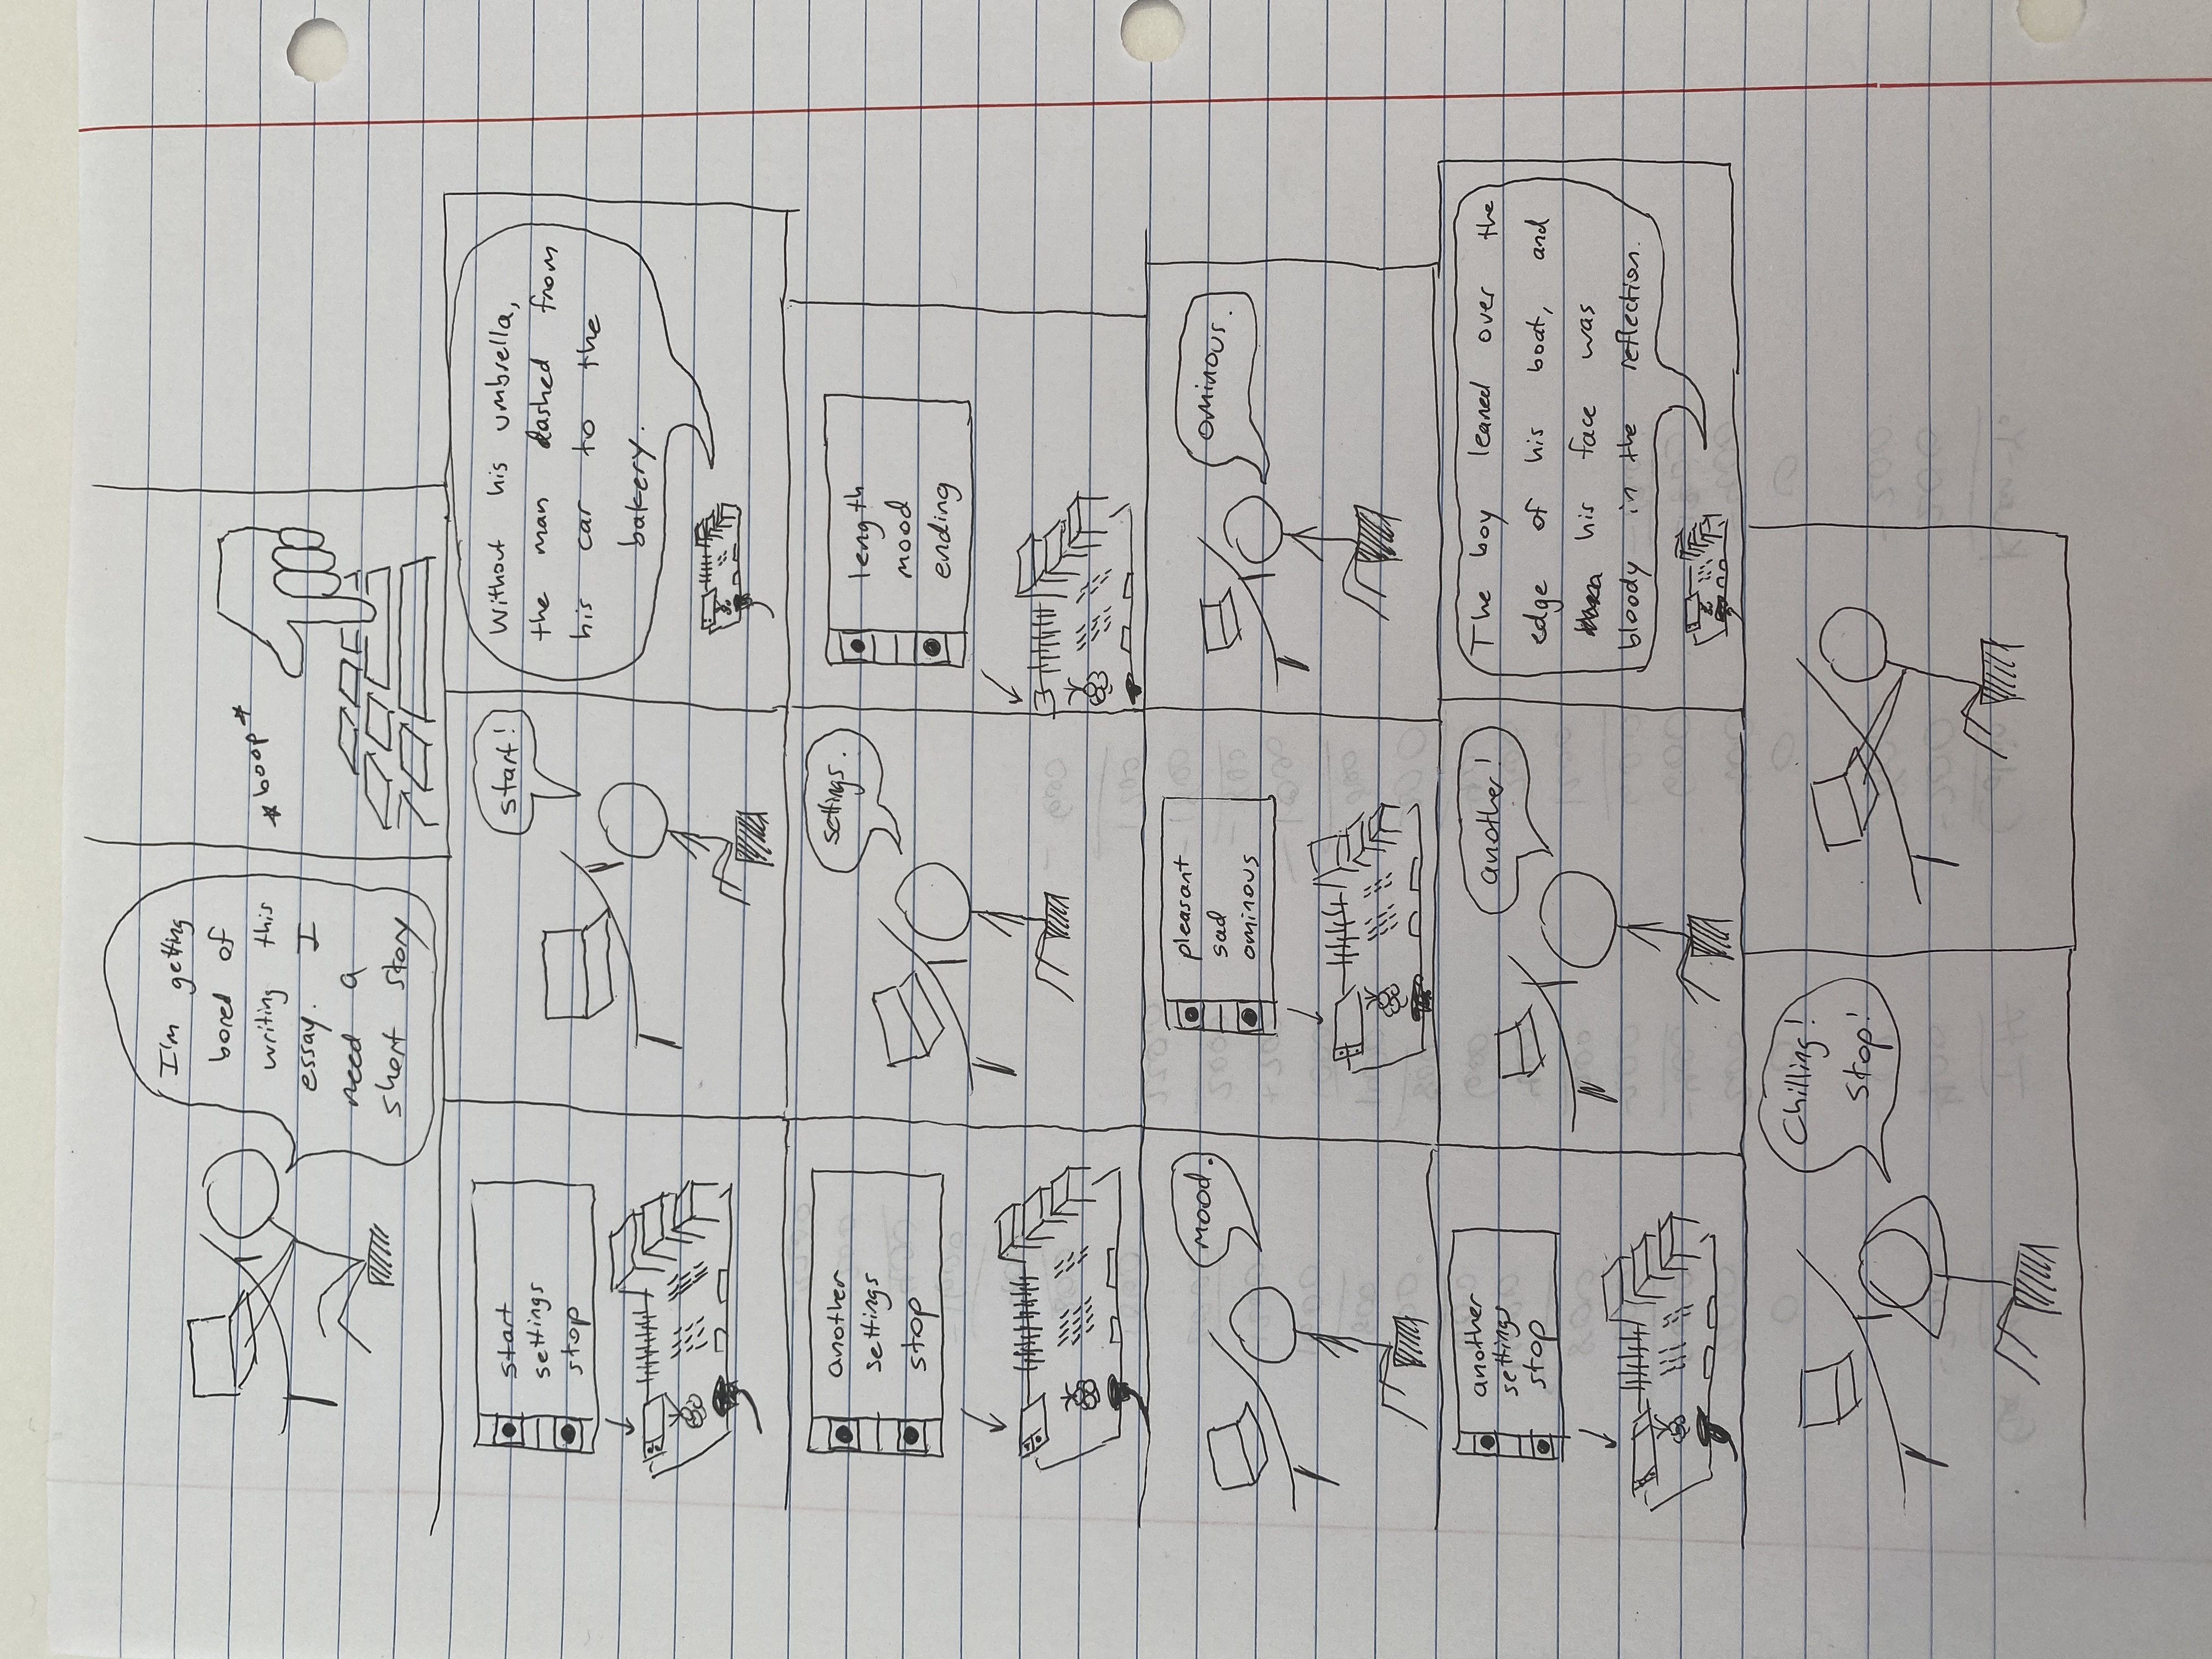 I'm getting
bored of
writing this
essay. I
need a
short story
*boop*
start
settings
stop
start!
Without his umbrella,
the man dashed from
his car to the
bakery.
another
settings
stop
settings.
length
mood
ending
mood.
pleasant
sad
ominous
ominous.
another
settings
stop
another!
The boy leaned over the
edge of his boat, and
his face was
bloody in the reflection.
Chilling!
Stop!